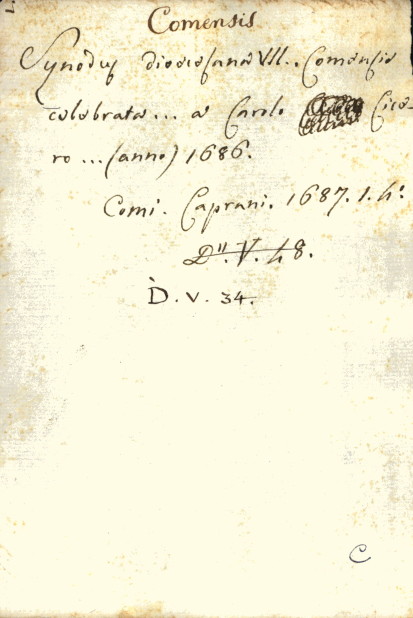 Comensis.
Synodus dioecesana VII.. Comensis
celebrata... a Carolo Cice
ro ... (anno) 1686.
Comi. Caprani. 1687. 1. 4º.
D''. V. 48.
D. v. 34.
C